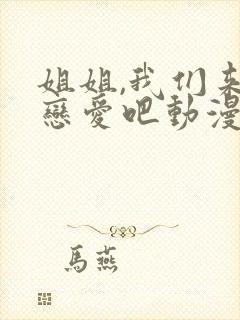 姐姐,我们来
戀愛吧動漫
馬燕